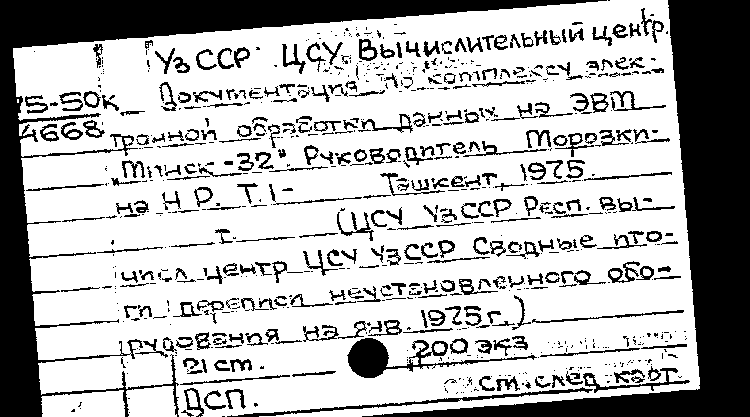 УзССР ЦСУ Вычислительный центр.
75-50к Документация по комплексу элек-
4668 тронной обработки данных на ЭВМ
"Минск-32". Руководитель Морозки-
на Н Р. Т.1- Ташкент, 1975.
т. (ЦСУ УзССР Респ. вы-
числ. центр ЦСУ УзССР Сводные ито-
ги переписи неустановленного обо-
рудования на янв. 1975 г.)
21 ст. 200 экз
ДСП. См. след. карт.